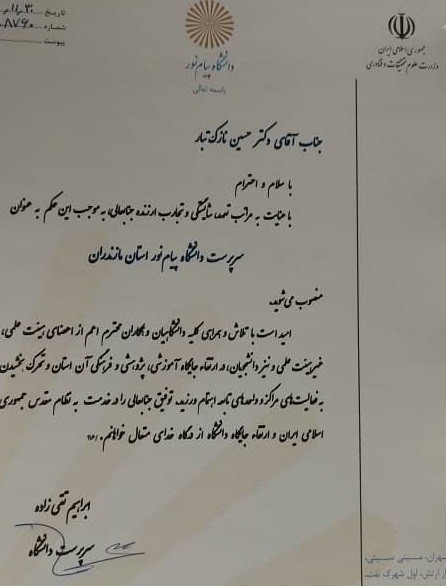 جمهوری اسلامی ایران
وزارت علوم تحقیقات و فناوری
دانشگاه پیام نور
باسمه تعالی
تاریخ
شماره ۸۷۶۰
پیوست
جناب آقای دکتر حسین نازک‌تبار
با سلام و احترام
با عنایت به مراتب تعهد، شایستگی و تجارب ارزنده جنابعالی، به موجب این حکم به عنوان
سرپرست دانشگاه پیام نور استان مازندران
منصوب می‌شوید.
امید است با تلاش و همراهی کلیه دانشگاهیان و همکاران محترم اعم از اعضای هیئت علمی،
غیرهیئت علمی و نیز دانشجویان، در ارتقاء جایگاه آموزشی، پژوهشی و فرهنگی آن استان و تحرک بخشیدن
به فعالیت‌های مراکز و واحدهای تابعه اهتمام ورزید. توفیق جنابعالی را در خدمت به نظام مقدس جمهوری
اسلامی ایران و ارتقاء جایگاه دانشگاه از درگاه خدای متعال خواهانم.
ابراهیم تقی زاده
سرپرست دانشگاه
تهران، مینی سیتی،
ارتش، اول شهرک نفت،